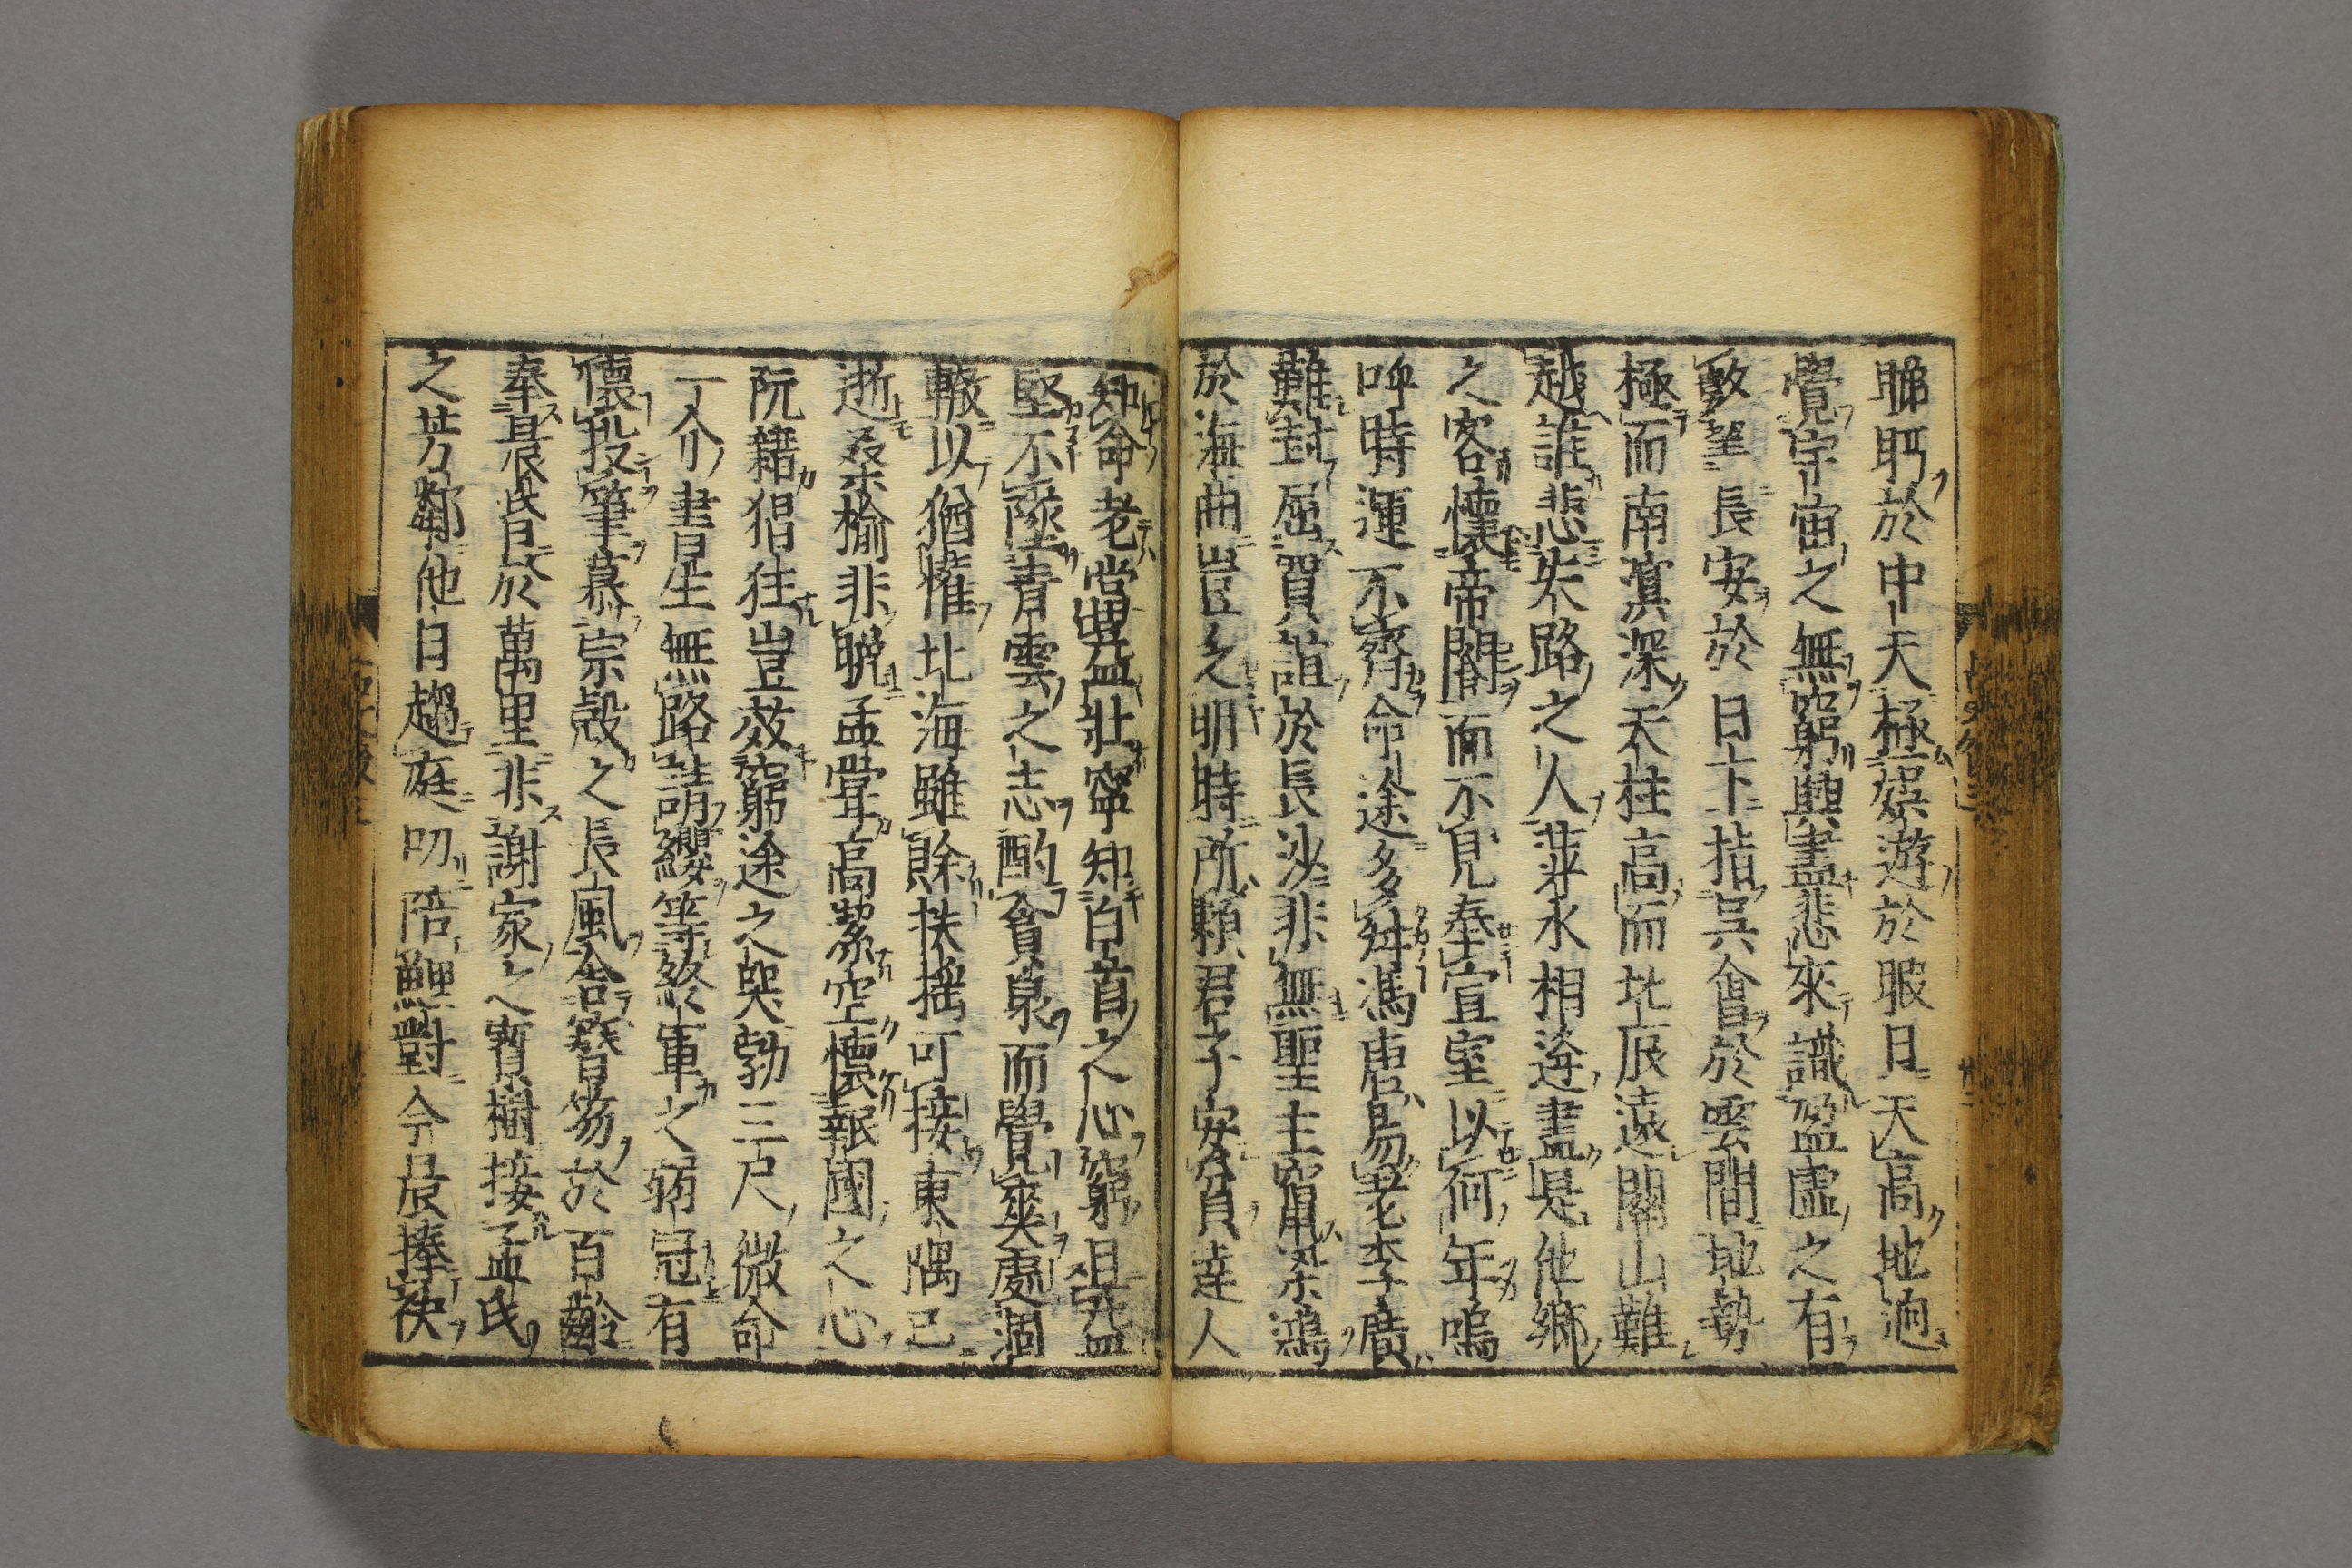 睇眄於中天極娛遊於暇日天高地逈
覺宇宙之無窮興盡悲來識盈虛之有
數望長安於日下指吳會於雲間地勢
極而南溟深天柱高而北辰遠關山難
越誰悲失路之人萍水相逢盡是他鄉
之客懷帝閽而不見奉宣室以何年嗚
呼時運不齊命途多舛馮唐易老李廣
難封屈賈誼於長沙非無聖主竄梁鴻
於海曲豈乏明時所賴君子安貧達人
知命老當益壯寧知白首之心窮且益
堅不墜青雲之志酌貪泉而覺爽處涸
轍以猶懽北海雖賒扶搖可接東隅已
逝桑榆非晚孟嘗高絜空懷報國之心
阮籍猖狂豈效窮途之哭勃三尺微命
一介書生無路請纓等終軍之弱冠有
懷投筆慕宗愨之長風舍簪笏於百齡
奉晨昏於萬里非謝家之寶樹接孟氏
之芳鄰他日趨庭叨陪鯉對今晨捧袂